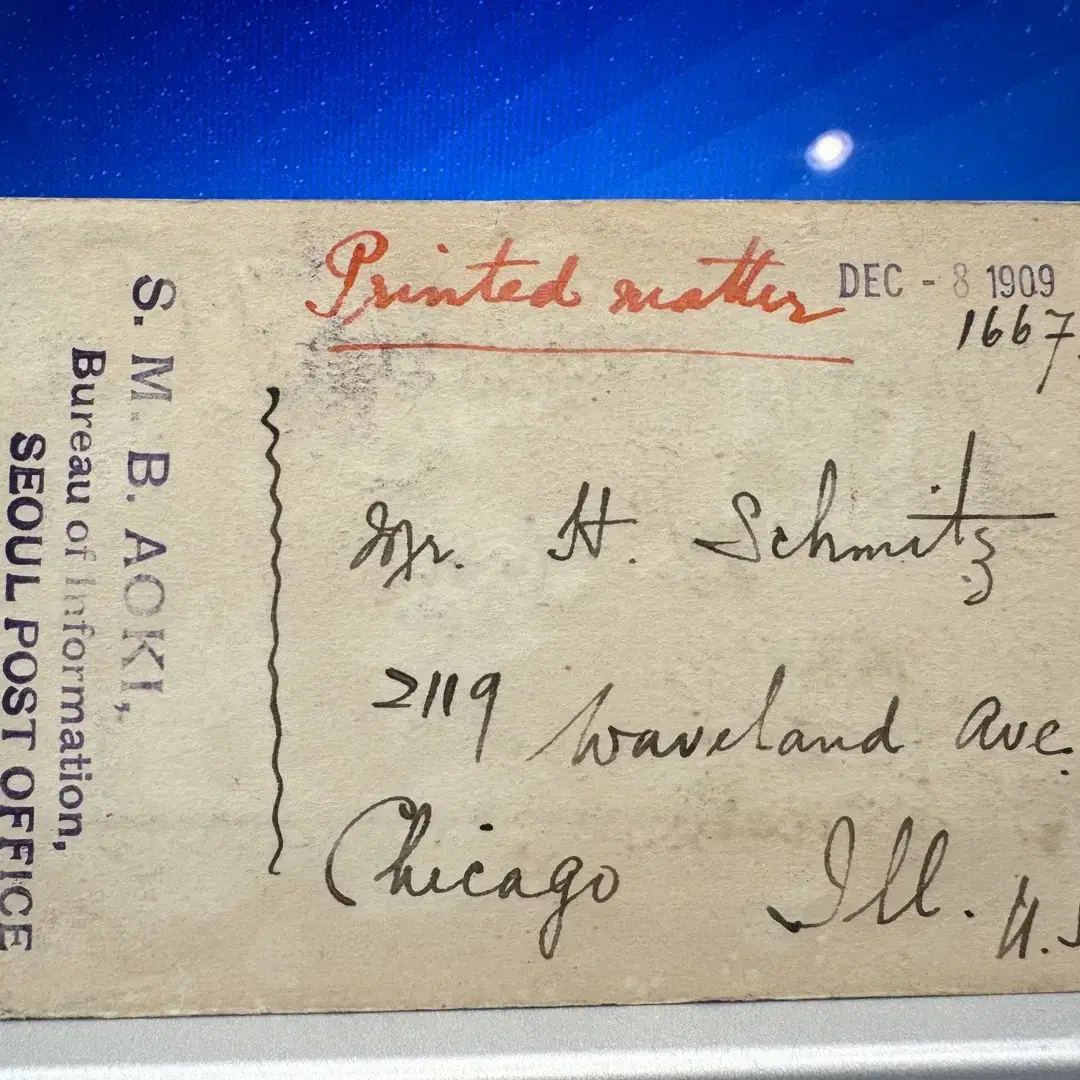 Printed matter
DEC - 8 1909
1667.
S. M. B. AOKI,
Bureau of Information,
SEOUL POST OFFICE
Mr. H. Schmitz
2119 Waveland Ave.
Chicago Ill. U.S